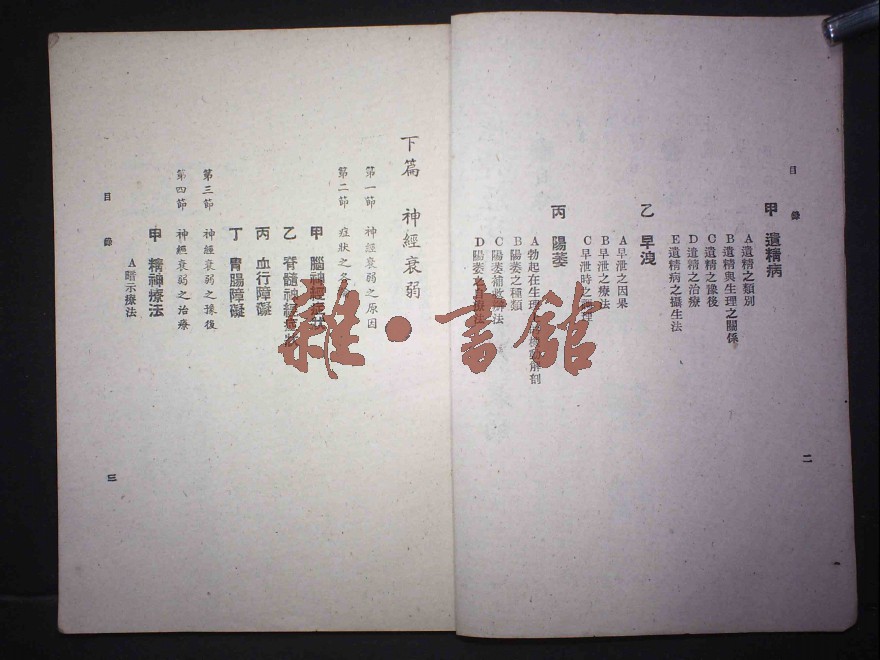 目錄
甲 遺精病
A遺精之類別
B遺精與生理之關係
C遺精之豫後
D遺精之治療
E遺精病之攝生法
乙 早洩
A早泄之因果
B早泄之療法
C早泄時之心理
丙 陽萎
A勃起在生理上解剖
B陽萎之種類
C陽萎補救法
D陽萎之療法
二
下篇 神經衰弱
第一節 神經衰弱之原因
第二節 症狀之各
甲 腦神經症狀
乙 脊髓神經症狀
丙 血行障礙
丁 胃腸障礙
第三節 神經衰弱之豫後
第四節 神經衰弱之治療
甲 精神療法
A暗示療法
目錄
三
雜·書館